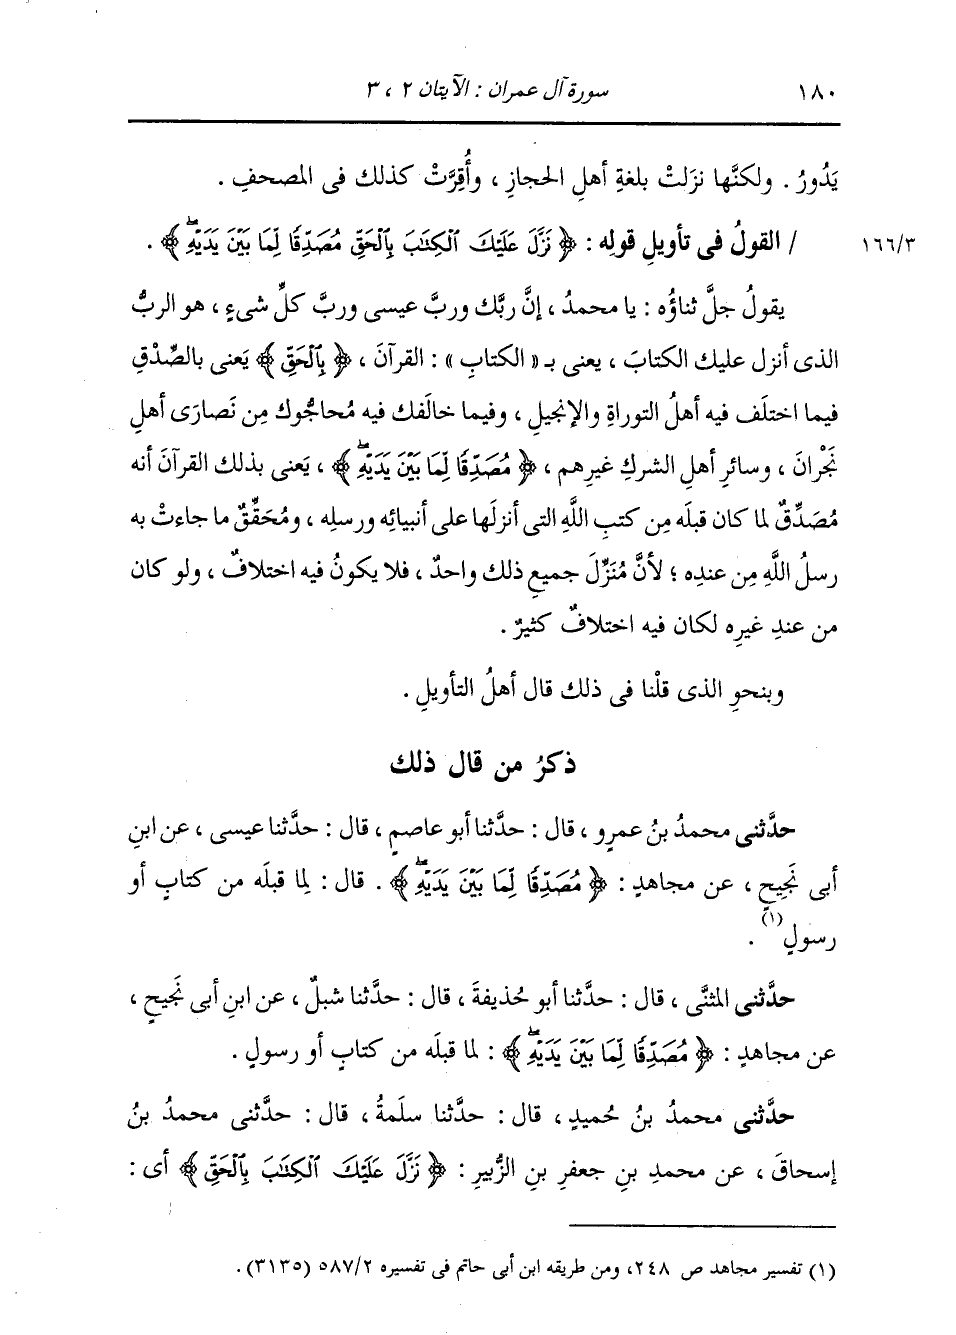 ١٨٠ سورة آل عمران : الآيتان ٢ ، ٣
يَدُورُ . ولكنَّها نزَلتْ بلغةِ أهلِ الحجازِ ، وأُقِرَّتْ كذلك فى المصحفِ .
١٦٦/٣ / القولُ فى تأويلِ قولِه : ﴿ نَزَّلَ عَلَيْكَ ٱلْكِتَٰبَ بِٱلْحَقِّ مُصَدِّقًا لِّمَا بَيْنَ يَدَيْهِۖ ﴾ .
يقولُ جلَّ ثناؤُه : يا محمدُ ، إنَّ ربَّك وربَّ عيسى وربَّ كلِّ شىءٍ ، هو الربُّ
الذى أنزل عليك الكتابَ ، يعنى بـ « الكتابِ » : القرآنَ ، ﴿ بِٱلْحَقِّ ﴾ يَعنى بالصِّدْقِ
فيما اختلَف فيه أهلُ التوراةِ والإنجيلِ ، وفيما خالَفك فيه مُحاجُّوك مِن نَصارَى أهلِ
نَجْرانَ ، وسائرِ أهلِ الشركِ غيرِهم ، ﴿ مُصَدِّقًا لِّمَا بَيْنَ يَدَيْهِۖ ﴾ ، يَعنى بذلك القرآنَ أنه
مُصَدِّقٌ لما كان قبلَه مِن كتبِ اللَّهِ التى أنزلَها على أنبيائِه ورسلِه ، ومُحَقِّقٌ ما جاءتْ به
رسلُ اللَّهِ مِن عندِه ؛ لأنَّ مُنَزِّلَ جميعِ ذلك واحدٌ ، فلا يكونُ فيه اختلافٌ ، ولو كان
من عندِ غيرِه لكان فيه اختلافٌ كثيرٌ .
وبنحوِ الذى قلْنا فى ذلك قال أهلُ التأويلِ .
ذكرُ من قال ذلك
حدَّثنى محمدُ بنُ عمرٍو ، قال : حدَّثنا أبو عاصمٍ ، قال : حدَّثنا عيسى ، عن ابنِ
أبى نَجِيحٍ ، عن مجاهدٍ : ﴿ مُصَدِّقًا لِّمَا بَيْنَ يَدَيْهِۖ ﴾ . قال : لِما قبلَه من كتابٍ أو
رسولٍ (١) .
حدَّثنى المثنَّى ، قال : حدَّثنا أبو حُذيفةَ ، قال : حدَّثنا شبلٌ ، عن ابنِ أبى نَجيحٍ ،
عن مجاهدٍ : ﴿ مُصَدِّقًا لِّمَا بَيْنَ يَدَيْهِۖ ﴾ : لما قبلَه من كتابٍ أو رسولٍ .
حدَّثنى محمدُ بنُ حُميدٍ ، قال : حدَّثنا سلَمةُ ، قال : حدَّثنى محمدُ بنُ
إسحاقَ ، عن محمدِ بنِ جعفرِ بنِ الزُّبيرِ : ﴿ نَزَّلَ عَلَيْكَ ٱلْكِتَٰبَ بِٱلْحَقِّ ﴾ أى :
(١) تفسير مجاهد ص ٢٤٨، ومن طريقه ابن أبى حاتم فى تفسيره ٥٨٧/٢ (٣١٣٥) .